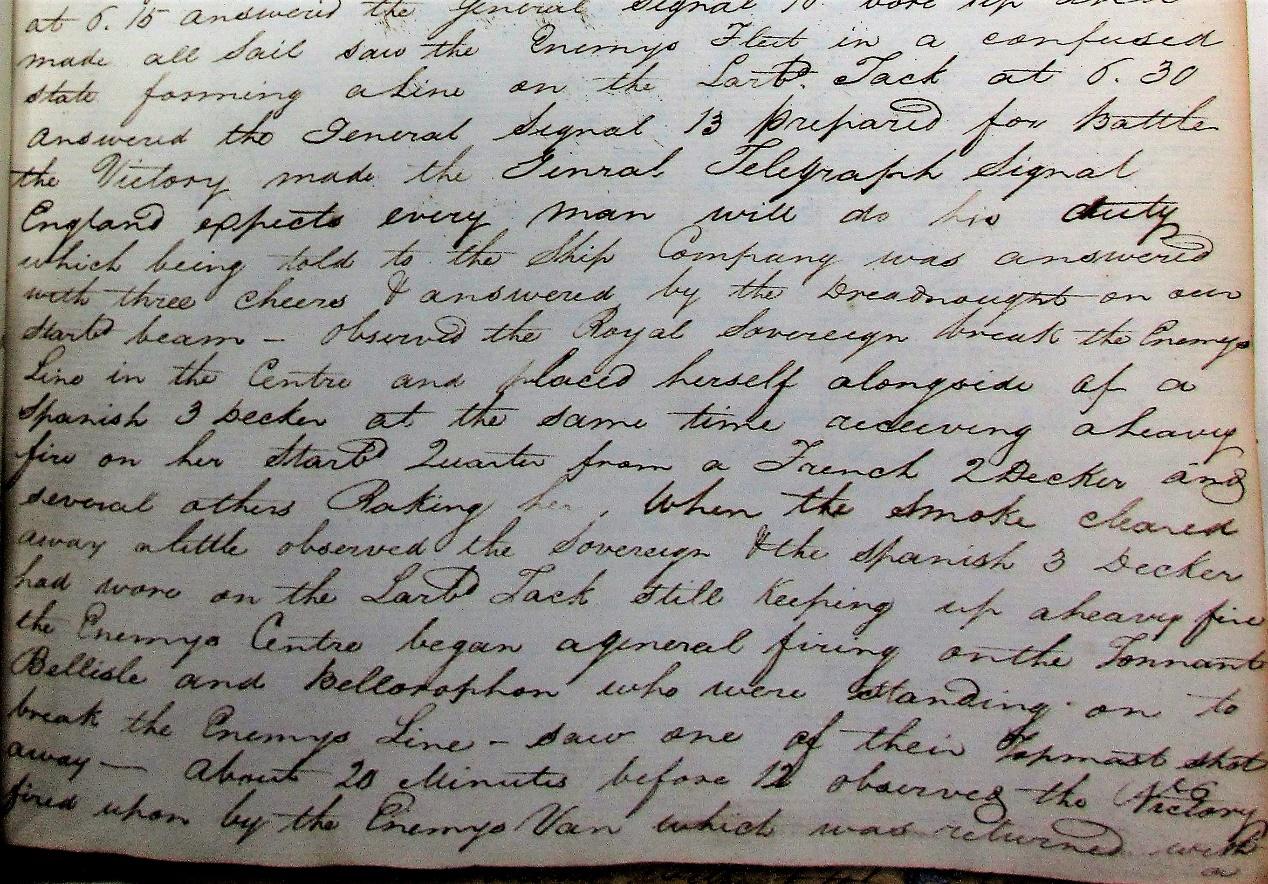 at 6.15 answered the General Signal 10 bore up and
made all Sail saw the Enemys Fleet in a confused
state forming a Line on the Larbd. Tack at 6.30
answered the General Signal 13 prepared for Battle
the Victory made the Ginral Telegraph Signal
England expects every man will do his duty
which being told to the Ship Company was answered
with three cheers & answered by the Dreadnought on our
Starbd beam - observed the Royal Sovereign break the Enemys
Line in the Centre and placed herself alongside of a
Spanish 3 Decker at the same time receiving a heavy
fire on her Starbd Quarter from a French 2 Decker and
several others Raking her. When the Smoke cleared
away a little observed the Sovereign & the Spanish 3 Decker
had wore on the Larbd Tack Still Keeping up a heavy fire
the Enemys Centre began a general firing on the Tonnant
Bellisle and Bellorophon who were Standing on to
break the Enemys Line - saw one of their Topmast shot
away - About 20 Minutes before 12 observed the Victory
fired upon by the Enemys Van which was returned with
a